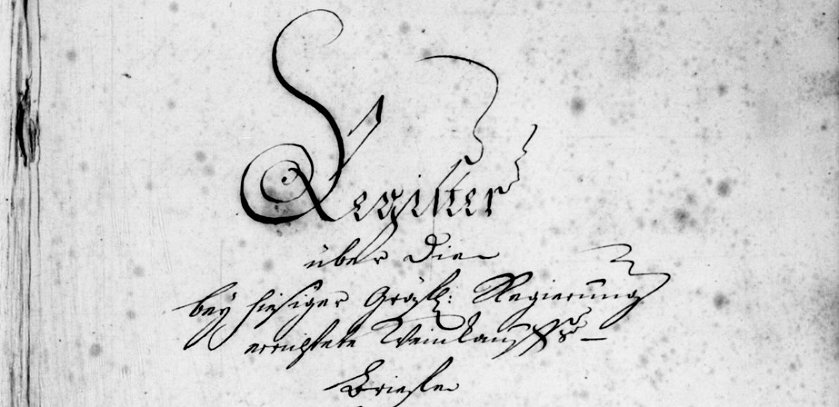 Register
über die
bey hiesiger Gräfl: Regierung
errichtete Weinkauffs-
Briefe